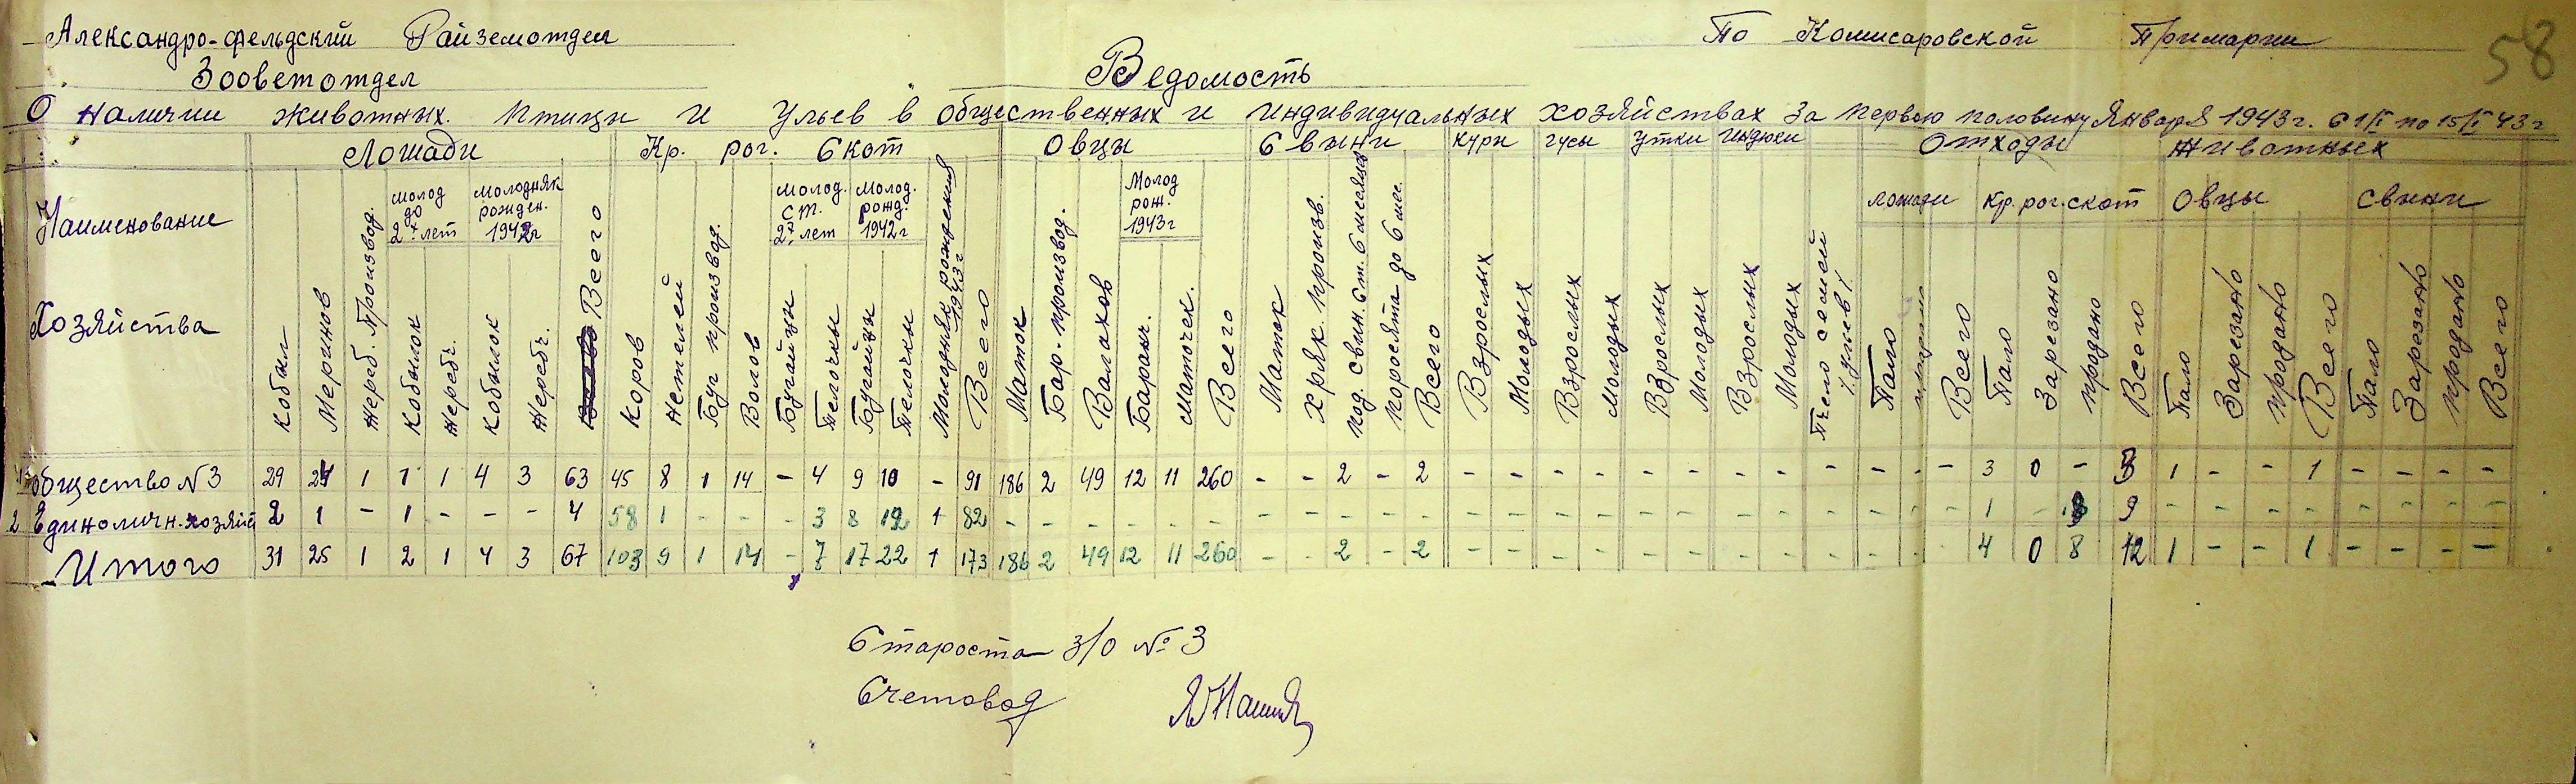 Александро-фельдский Райземотдел
По Комисаровской Примарии
58
Зооветотдел
Ведомость
О наличии животных. птицы и ульев в общественных и индивидуальных хозяйствах за первою половину Января 1943 г. с 1/I по 15/I 43 г
Лошади Кр. рог. Скот Овцы Свини куры гусы утки индюки Отходы животных
Наименование Хозяйства
молод до 2х лет
молодняк рожден. 1942г
молод. ст. 2х лет
Молод. рожд. 1942 г
Молод рож. 1943 г
лошади Кр. рог. скот Овцы Свини
Кобыл
Меринов
Жереб. Производ.
Кобылок
Жеребч.
Кобылок
Жеребч.
Всего
Коров
Нетелей
Буг производ.
Волов
Бугайцы
Телочки
Бугайцы
Телочки
Молодняк рождения 1943 г
Всего
Маток
Бар. производ.
Валахов
Баранч.
маточек.
Всего
Маток
Хряк. произв.
под. свин. ст. 6 месяцев
поросята до 6 мес.
Всего
Взрослых
Молодых
Взрослых
Молодых
Взрослых
Молодых
Взрослых
Молодых
Пчело семей /ульев/
Пало
Всего
Пало
Зарезано
продано
Всего
Пало
Зарезано
продано
Всего
Пало
Зарезано
продано
Всего
1 Общество N 3 29 24 1 1 1 4 3 63 45 8 1 14 - 4 9 10 - 91 186 2 49 12 11 260 - - 2 - 2 - - - - - - - - - - - - 3 0 - 3 1 - - 1 - - - -
2 Единоличн. хозяйст 2 1 - 1 - - - 4 58 1 - - - 3 8 12 1 82 - - - - - - - - - - - - - - - - - - - - - - - 1 - 8 9 - - - - - - - -
Итого 31 25 1 2 1 4 3 67 103 9 1 14 - 7 17 22 1 173 186 2 49 12 11 260 - - 2 - 2 - - - - - - - - - - - - 4 0 8 12 1 - - 1 - - - -
Староста з/о № 3
Счетовод